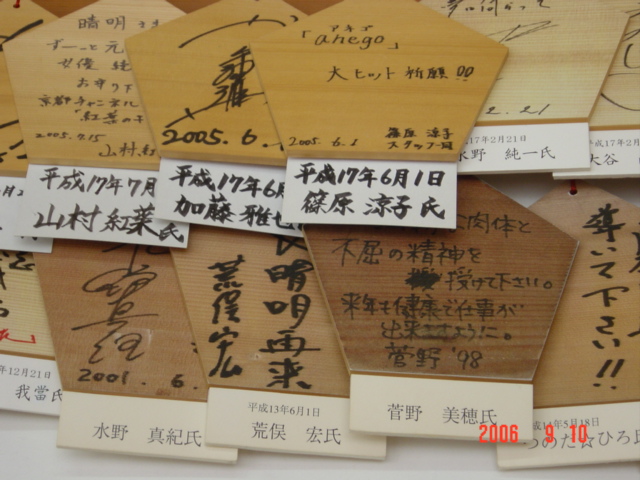 晴明さま
ずーっと元
女優
お守り下
京都チャンネル
「紅葉の
2005.7.15
山村紅
平成17年7月
山村 紅葉氏
2005.6.
平成17年6月
加藤 雅也
アネゴ
「anego」
大ヒット祈願!!
2005.6.1
篠原 涼子
スタッフ一同
平成17年6月1日
篠原 涼子氏
2.21
17年2月21日
水野 純一氏
平成17年2月
大谷
12月21日
我當氏
2001.6.
水野 真紀氏
晴明再来
荒俣宏
平成13年6月1日
荒俣 宏氏
肉体と
不屈の精神を
授けて下さい。
来年も健康で仕事が
出来ますように。
菅野 '98
菅野 美穂氏
導いて下さい!!
14年5月18日
つのだ☆ひろ氏
2006 9 10